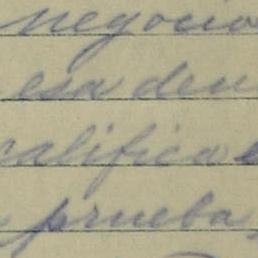 negocio
esa den
califica
prueba,